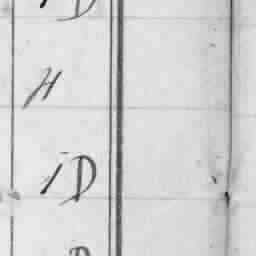 D
H
1D
D